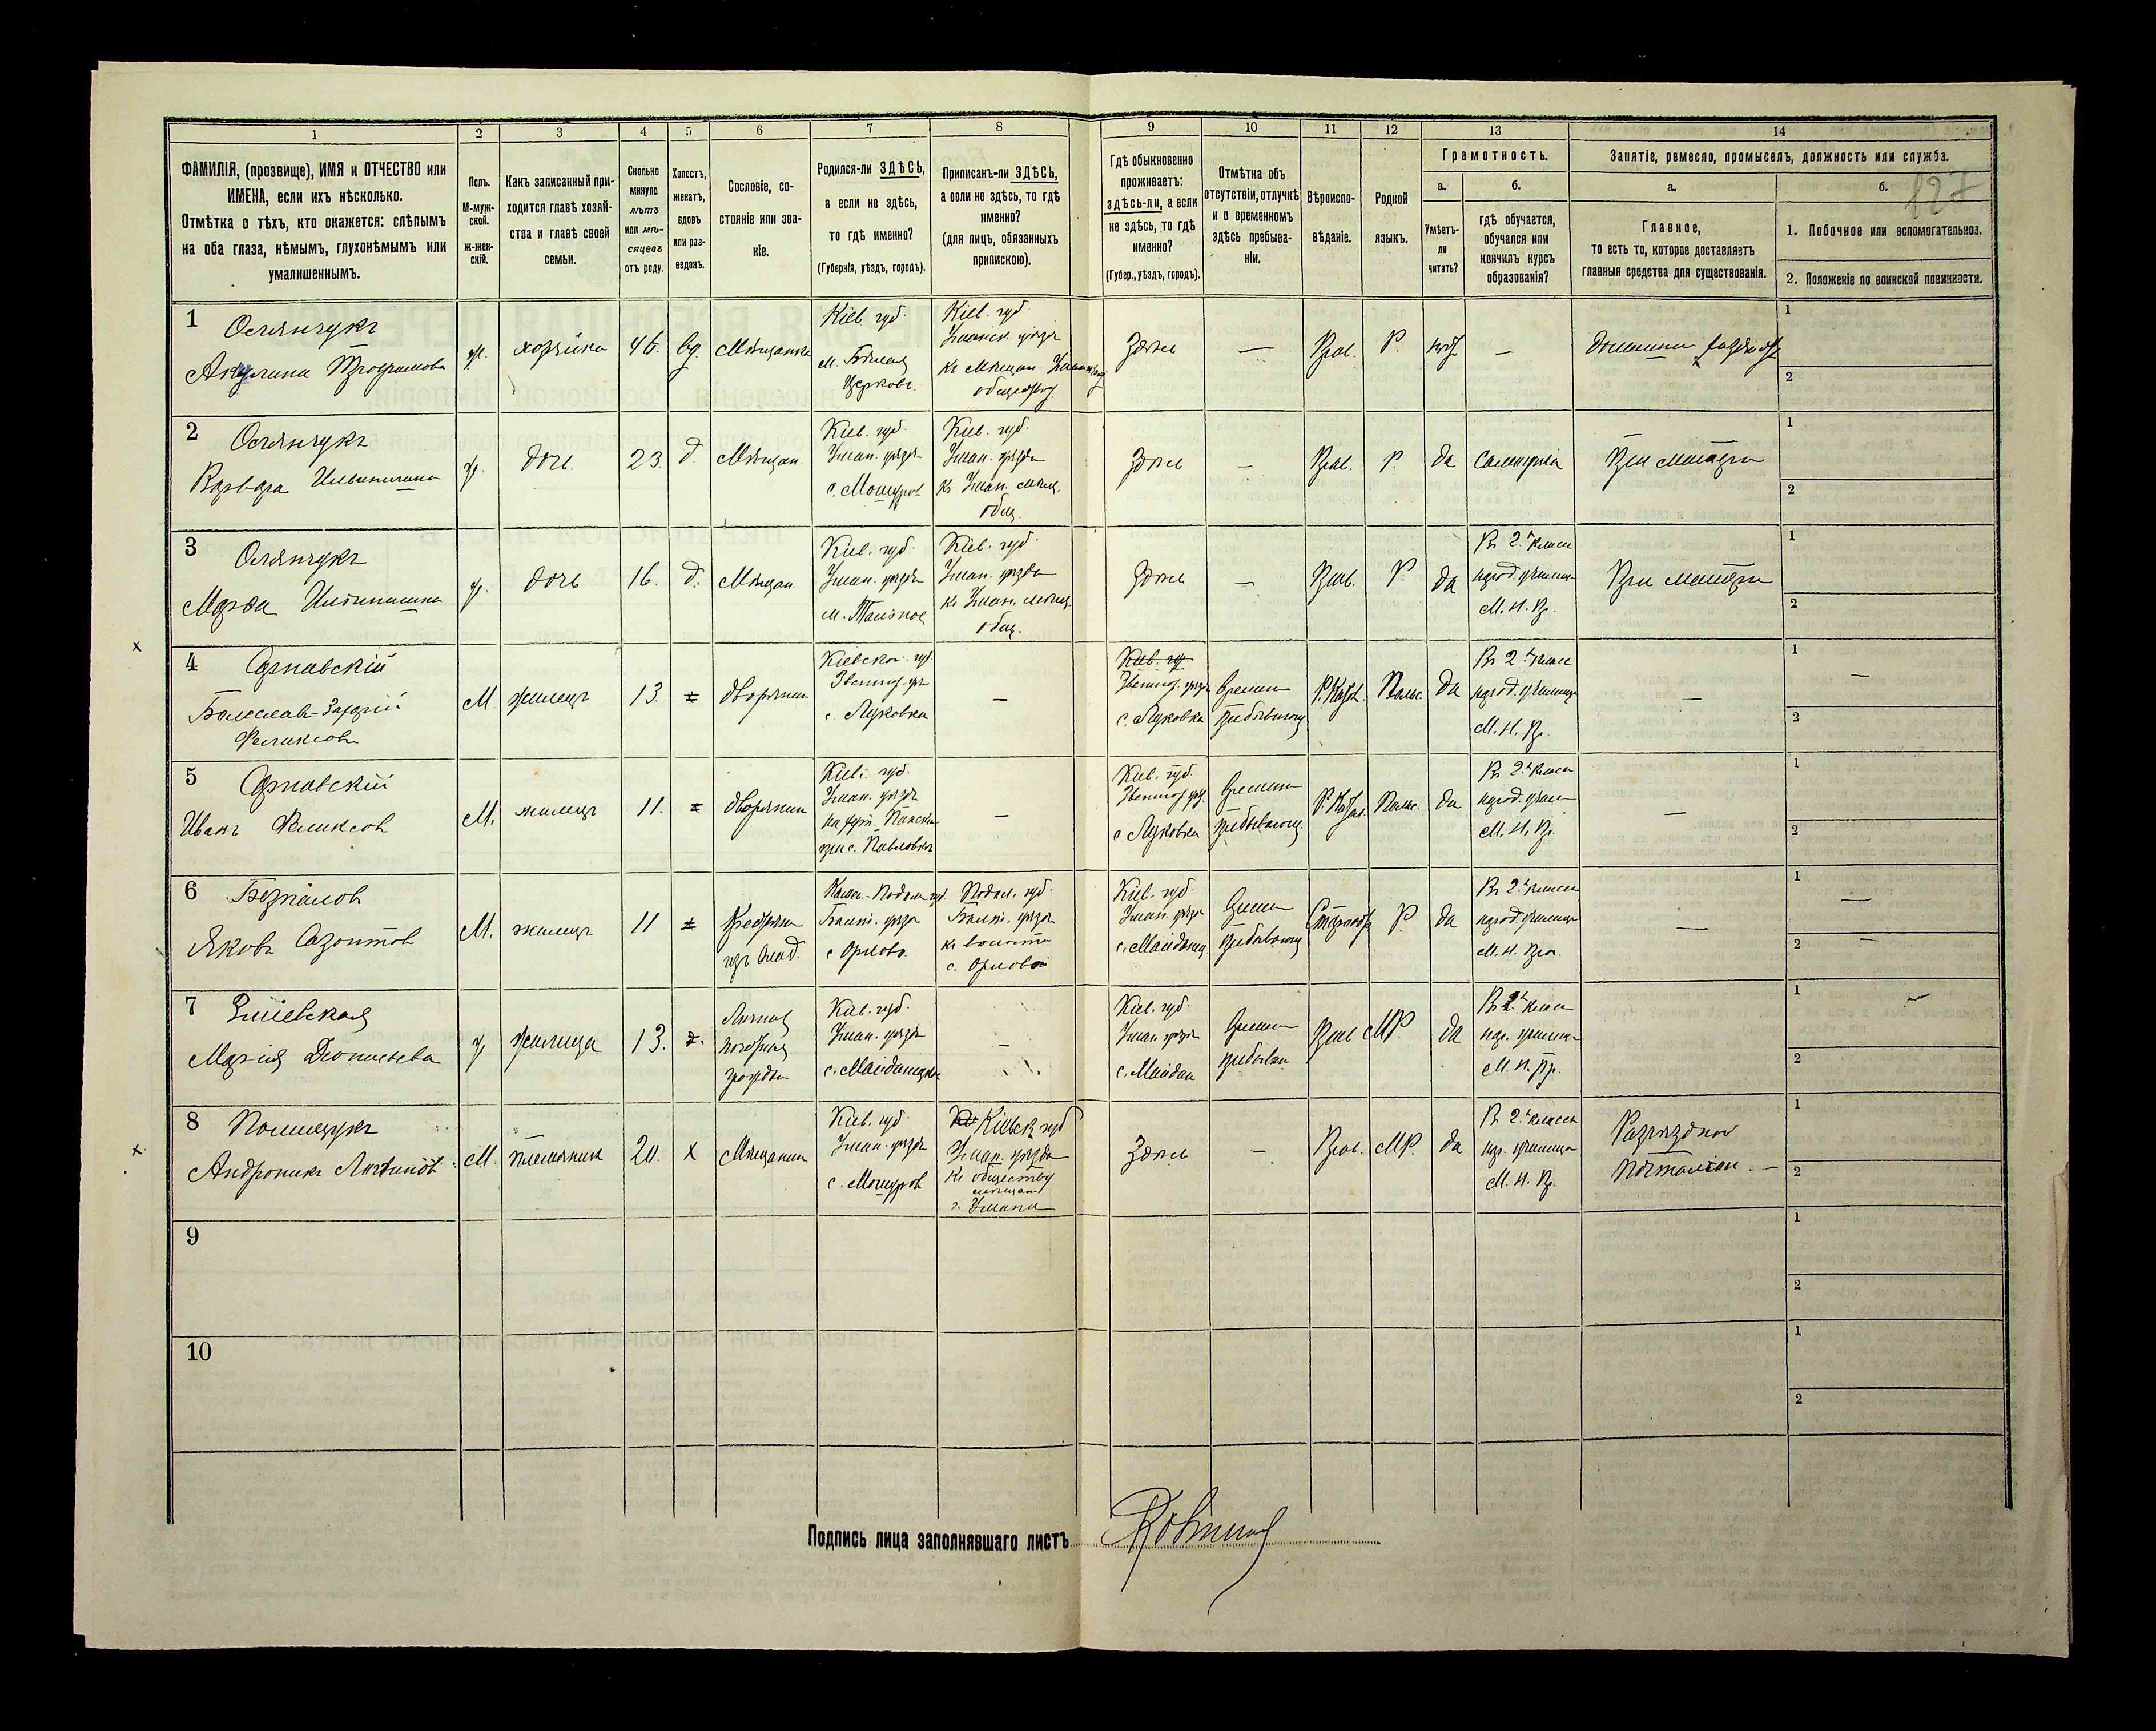 127
1 2 3 4 5 6 7 8 9 10 11 12 13 14
ФАМИЛІЯ, (прозвище), ИМЯ и ОТЧЕСТВО или
ИМЕНА, если ихъ нѣсколько.
Отмѣтка о тѣхъ, кто окажется: слѣпымъ
на оба глаза, нѣмымъ, глухонѣмымъ или
умалишеннымъ.
Полъ.
М-муж-
ской.
ж-жен-
скій.
Какъ записанный при-
ходится главѣ хозяй-
ства и главѣ своей
семьи.
Сколько
минуло
лѣтъ
или мѣ-
сяцевъ
отъ роду.
Холостъ,
женатъ,
вдовъ
или раз-
веденъ.
Сословіе, со-
стояніе или зва-
ніе.
Родился-ли ЗДѢСЬ,
а если не здѣсь,
то гдѣ именно?
(Губернія, уѣздъ, городъ).
Приписанъ-ли ЗДѢСЬ,
а если не здѣсь, то гдѣ
именно?
(для лицъ, обязанныхъ
припискою).
Гдѣ обыкновенно
проживаетъ:
здѣсь-ли, а если
не здѣсь, то гдѣ
именно?
(Губер., уѣздъ, городъ).
Отмѣтка объ
отсутствіи, отлучкѣ
и о временномъ
здѣсь пребыва-
ніи.
Вѣроиспо-
вѣданіе.
Родной
языкъ.
Грамотность.
а.
Умѣетъ-
ли
читать?
б.
гдѣ обучается,
обучался или
кончилъ курсъ
образованія?
Занятіе, ремесло, промыселъ, должность или служба.
а.
Главное,
то есть то, которое доставляетъ
главныя средства для существованія.
б.
1. Побочное или вспомогательное.
2. Положеніе по воинской повинности.
1
Трофимова
ж.
хозяйка
46.
вд.
Мѣщанка
Кіев. губ.
м. Бѣлая
Церковь
Кіев. губ.
Уманск. уѣзда
къ мѣщан.
обществу
Здѣсь
—
Прав.
Р.
нѣт
—
1
2
2
Варвара
ж.
дочь.
23.
д.
Мѣщан.
Кіев. губ.
Уман. уѣзда
с. Мошуров
Кіев. губ.
Уман. уѣзда
къ Уман. мѣщ.
общ.
Здѣсь
—
Прав.
Р.
да
При матери
1
2
3
Марѳа
ж.
дочь
16.
д.
Мѣщан.
Кіев. губ.
Уман. уѣзда
м. Тальное
Кіев. губ.
Уман. уѣзда
къ Уман. мѣщ.
общ.
Здѣсь
—
Прав.
Р
да
Въ 2. классѣ
народ. училищ
М. Н. Пр.
При матери
1
2
x
4
Сарнавскій
Болеслав-
Феликсовъ
М.
жилецъ
13.
х
дворянин
Кіевской губ.
Звениг. уѣз
с. Луковка
—
Кіев. губ
Звениг. уѣзда
с. Луковка
времен
пребывающ
Р. Катол.
Польс.
да
Въ 2. классѣ
народ. училищ
М. Н. Пр.
—
1
—
2
5
Сарнавскій
Иванъ Феликсов
М.
жилецъ
11.
х
дворянин
Кіев. губ.
Уман. уѣзда
при с. Павловкѣ
—
Кіев. губ.
Звениг. уѣз.
с Луковка
времен
пребывающ.
Р. Катол.
Польс.
да
Въ 2. классѣ
народ. учил
М. Н. Пр.
—
1
2
6
Яковъ
М.
жилецъ
11
х
Балт. уѣзда
с Орлово.
Подол. губ.
Балт. уѣзда
къ волости
с. Орлово
Кіев. губ
Уман. уѣзда
с. Майданец.
Времен
пребывающ
Р.
да
Въ 2. классѣ
народ. училищ
М. Н. Про.
—
1
—
2
—
7
Змiевская
Марія Діонисьева
ж
жилица
13.
х.
Личная
почетная
гражд
Кіев. губ.
Уман. уѣзда
с. Майданецка
—
Кіев. губ.
Уман. уѣзда
с. Майдан
Времен
пребыван
Прав
МР.
да
Въ 2. классѣ
нар. училищ
М. Н. Пр.
1
2
x
8
Полищукъ
Андроникъ
М.
племянник
20.
х
Мѣщанин
Кіев. губ
Уман. уѣзда
с. Мошуров
Кіевск губ
Уман. уѣзда
къ обществу
мѣщан
г. Умани
Здѣсь
—
Прав.
МР.
да
Въ 2. классѣ
нар. училищ
М. Н. Пр.
Разъездной
Почталіон. —
1
2
9
1
2
10
1
2
Подпись лица заполнявшаго листъ